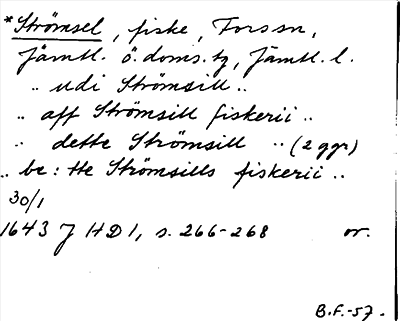 *Strömsel, fiske, Forssn,
Jämtl. ö. doms. tg, Jämtl. l.
„ udi Strömsill „
„ aff Strömsill fiskerii „
„ dette Strömsill „ (2 ggr)
„ be: tte Strömsills fiskerii „
30/1
1643 J HD 1, s. 266-268 or.
B.F.-57.